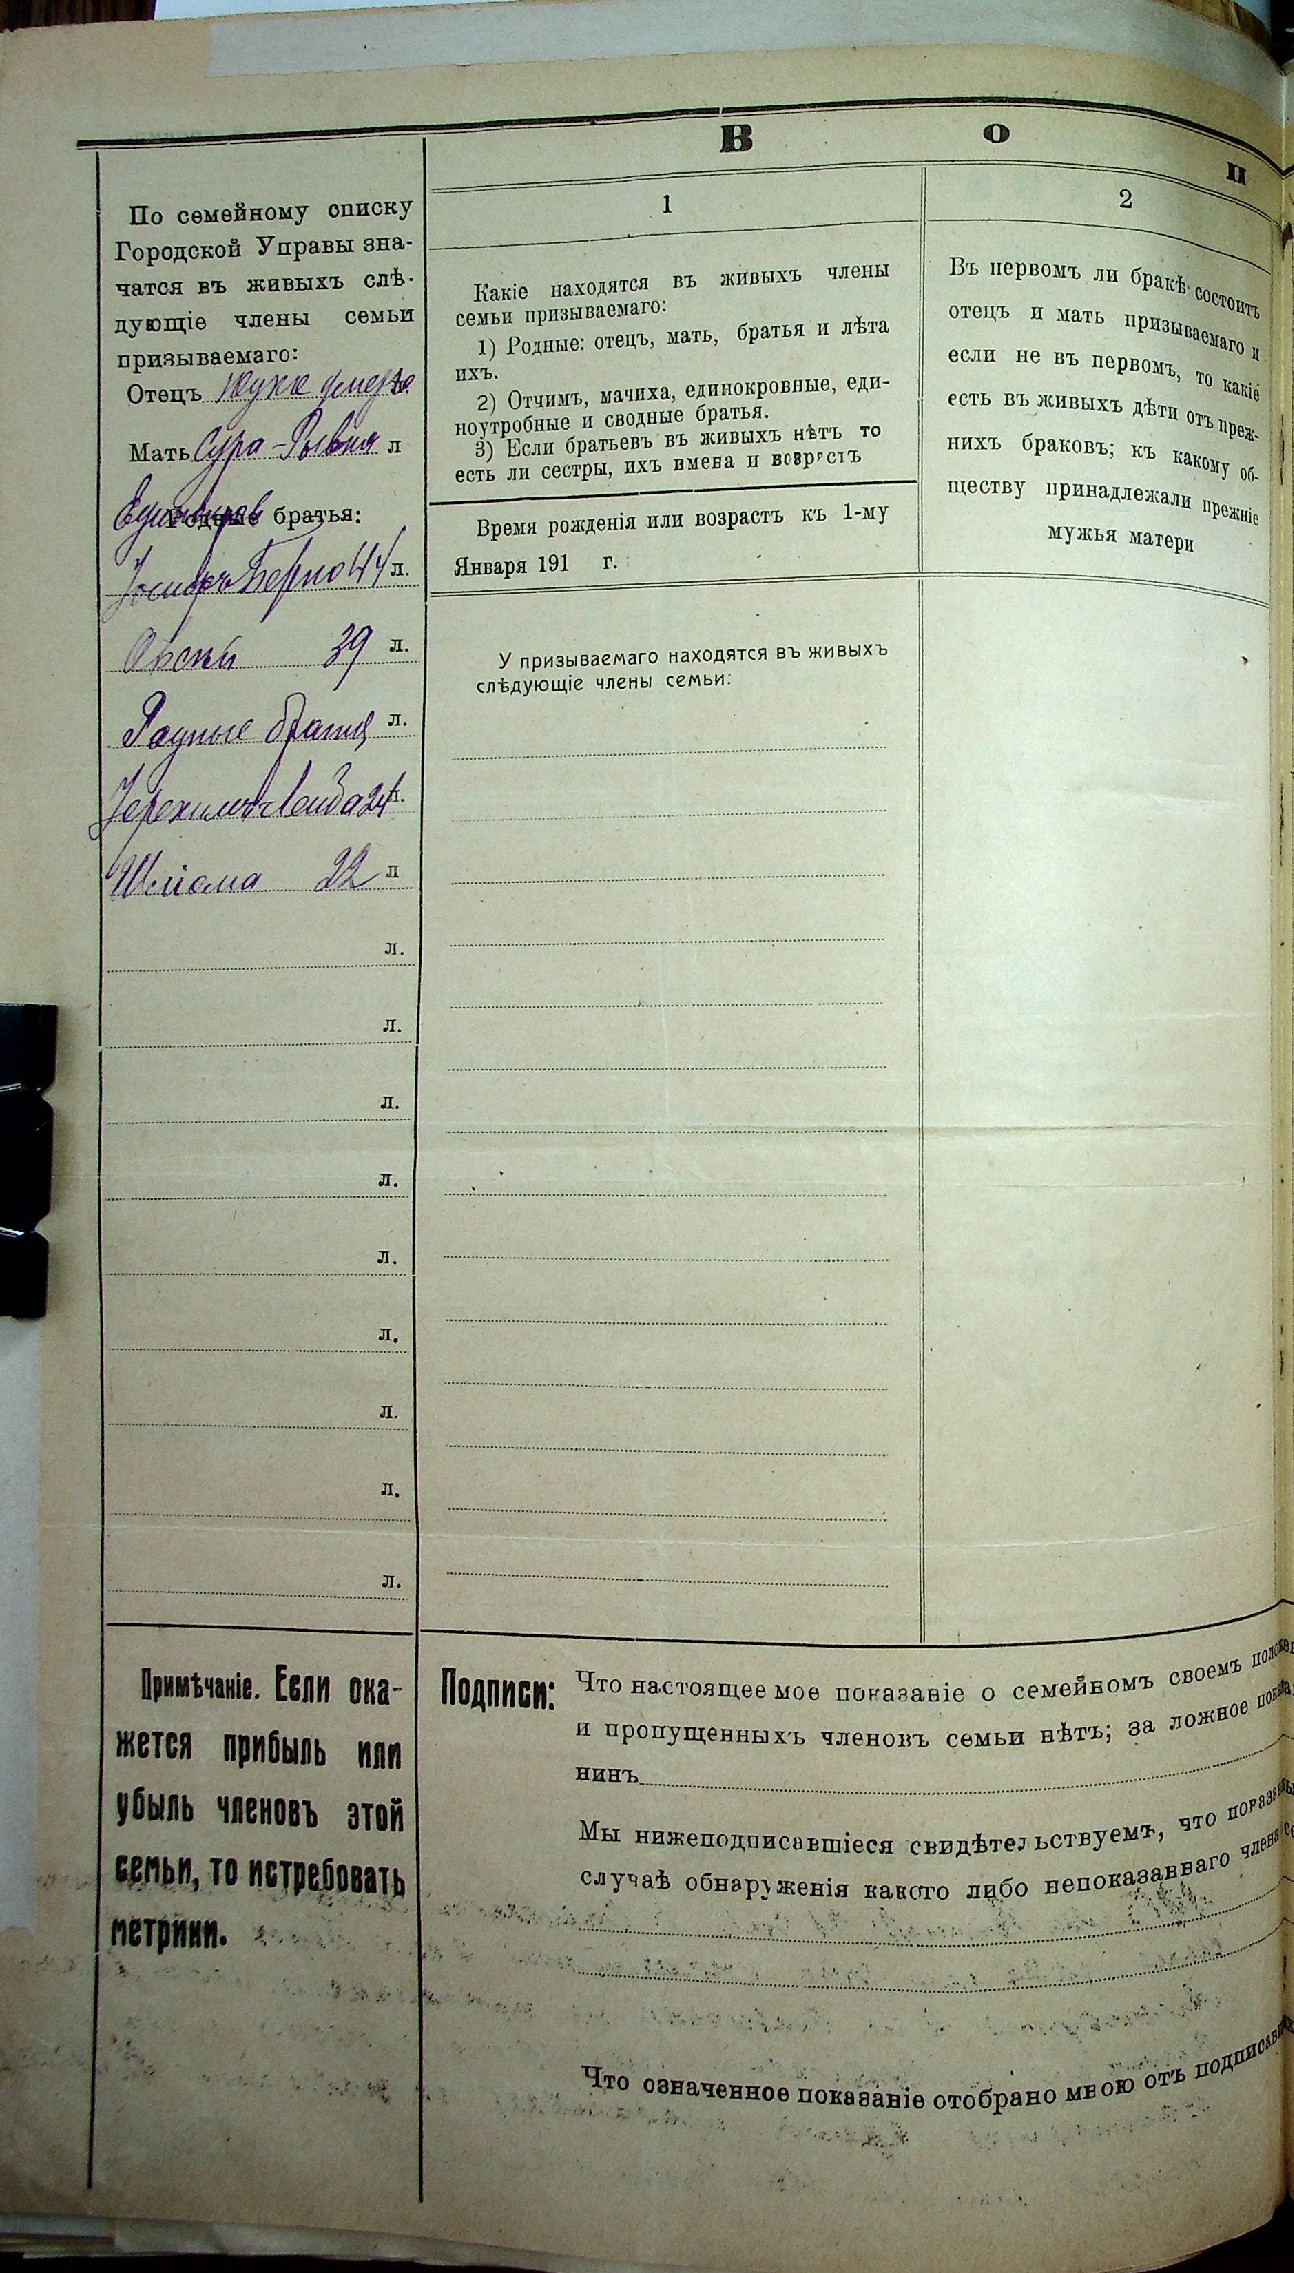 В о п
По семейному списку
Городской Управы зна-
чатся въ живыхъ слѣ-
дующіе члены семьи
призываемаго:
Отецъ умеръ
Мать Сура-Рывка л
Родные братья:
Іосифъ Берко 44 л.
Овсей 39 л.
Родные братья л.
Іерехимъ-Лейба 24 л.
Шлiома 22 л
л.
л.
л.
л.
л.
л.
л.
л.
л.
Примѣчаніе. Если ока-
жется прибыль или
убыль членовъ этой
семьи, то истребовать
метрики.
1
Какіе находятся въ живыхъ члены
семьи призываемаго:
1) Родные: отецъ, мать, братья и лѣта
ихъ.
2) Отчимъ, мачиха, единокровные, еди-
ноутробные и сводные братья.
3) Если братьевъ въ живыхъ нѣтъ то
есть ли сестры, ихъ имена и возрастъ
Время рожденія или возрастъ къ 1-му
Января 191 г.
У призываемаго находятся въ живыхъ
слѣдующіе члены семьи:
2
Въ первомъ ли бракѣ состоитъ
отецъ и мать призываемаго и
если не въ первомъ, то какіе
есть въ живыхъ дѣти отъ преж-
нихъ браковъ; къ какому об-
ществу принадлежали прежніе
мужья матери
Подписи: Что настоящее мое показаніе о семейномъ своемъ
и пропущенныхъ членовъ семьи нѣтъ; за ложное
нинъ
Мы нижеподписавшіеся свидѣтельствуемъ, что
случаѣ обнаруженія какого либо непоказаннаго члена
Что означенное показаніе отобрано мною отъ